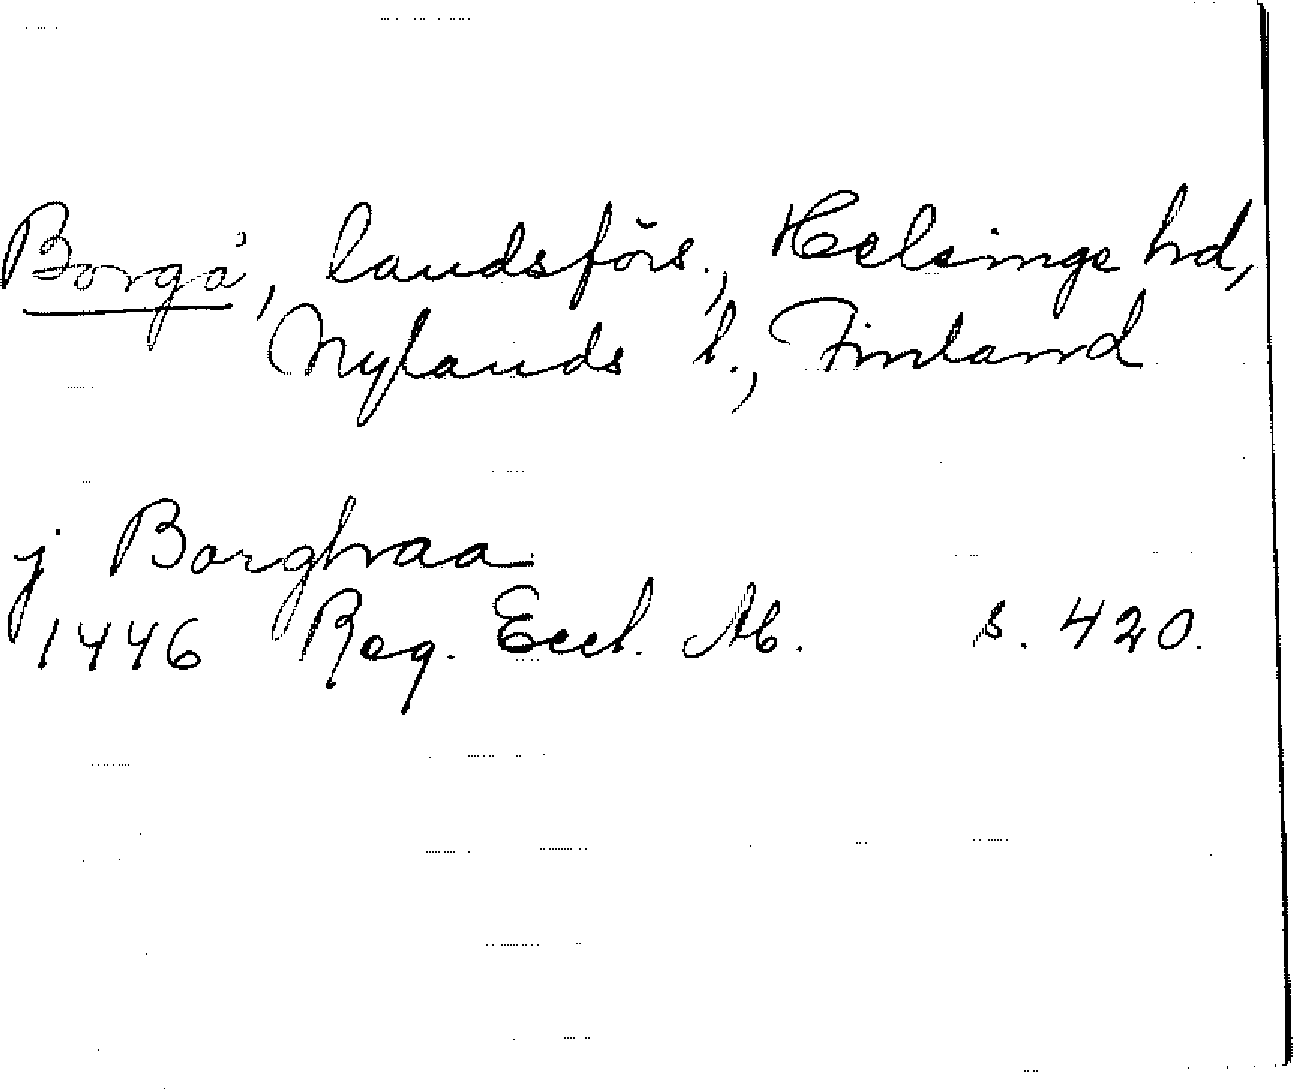 Borgå, landsförs., Helsinge hd,
Nylands l., Finland
j Borghraa
1446 Reg. Eccl. Ab. s. 420.